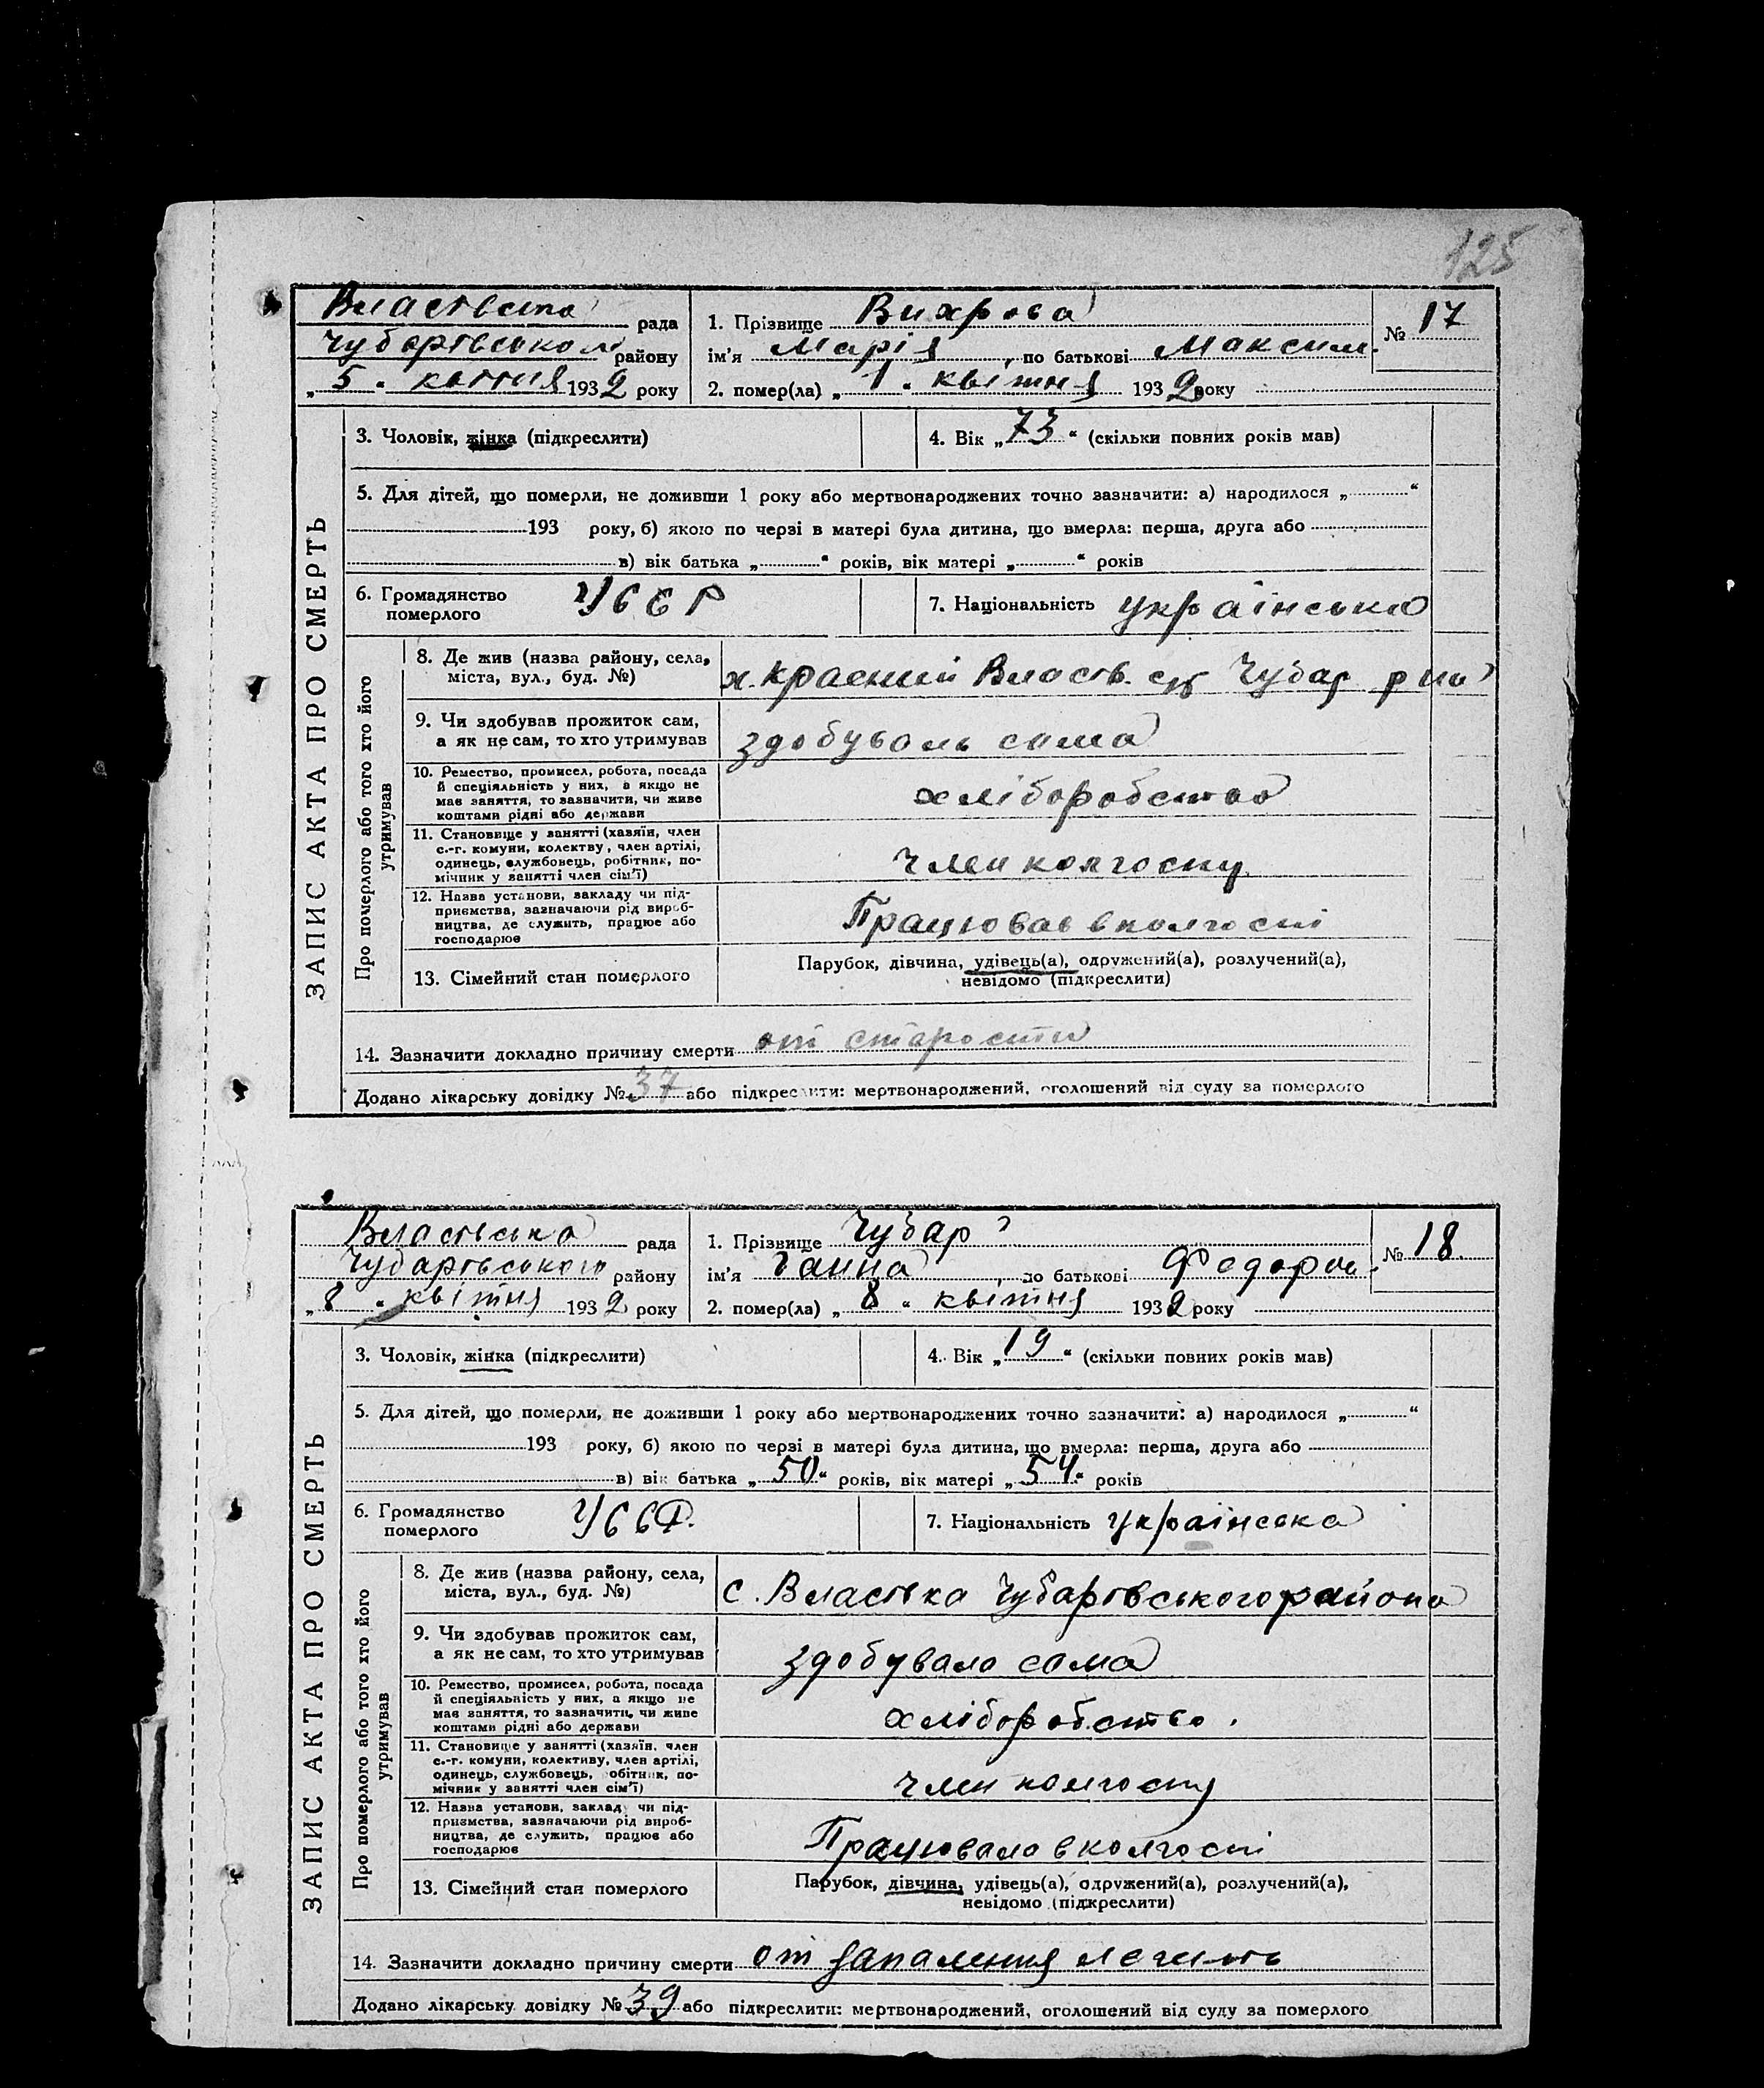 125
Властвська рада
Чубарівського району
„5“ квітня 1932 року
1. Прізвище Вихрова
ім’я Марія, по батькові Максим.
№ 17
2. помер(ла) „1“ квітня 1932 року
ЗАПИС АКТА ПРО СМЕРТЬ
3. Чоловік, жінка (підкреслити)
4. Вік „73“ (скільки повних років мав)
5. Для дітей, що померли, не доживши 1 року або мертвонароджених точно зазначити: а) народилося „ “
193 року, б) якою по черзі в матері була дитина, що вмерла: перша, друга або
в) вік батька „ “ років, вік матері „ “ років
6. Громадянство
померлого
УССР
7. Національність українська
Про померлого або того хто його
утримував
8. Де жив (назва району, села,
міста, вул., буд. №)
х. Красний Власів. с/р Чубар р на
9. Чи здобував прожиток сам,
а як не сам, то хто утримував
здобувала сама
10. Ремество, промисел, робота, посада
й спеціяльність у них, а якщо не
має заняття, то зазначити, чи живе
коштами рідні або держави
хліборобство
11. Становище у занятті (хазяїн, член
с.-г. комуни, колективу, член артілі,
одинець, службовець, робітник, по-
мічник у занятті член сім’ї)
член колгоспу
12. Назва установи, закладу чи під-
приємства, зазначаючи рід вироб-
ництва, де служить, працює або
господарює
Працював в колгоспі
13. Сімейний стан померлого
Парубок, дівчина, удівець(а), одружений(а), розлучений(а),
невідомо (підкреслити)
14. Зазначити докладно причину смерти от старости
Додано лікарську довідку № 37 або підкреслити: мертвонароджений, оголошений від суду за померлого
Властвська рада
Чубарівського району
„8“ квітня 1932 року
1. Прізвище Чубар
ім’я Ганна, по батькові Федоров.
№ 18.
2. помер(ла) „8“ квітня 1932 року
ЗАПИС АКТА ПРО СМЕРТЬ
3. Чоловік, жінка (підкреслити)
4. Вік „19“ (скільки повних років мав)
5. Для дітей, що померли, не доживши 1 року або мертвонароджених точно зазначити: а) народилося „ “
193 року, б) якою по черзі в матері була дитина, що вмерла: перша, друга або
в) вік батька „50“ років, вік матері „54“ років
6. Громадянство
померлого
УССР.
7. Національність українська
Про померлого або того хто його
утримував
8. Де жив (назва району, села,
міста, вул., буд. №)
с. Власівка Чубарівського района
9. Чи здобував прожиток сам,
а як не сам, то хто утримував
здобувала сама
10. Ремество, промисел, робота, посада
й спеціяльність у них, а якщо не
має заняття, то зазначити, чи живе
коштами рідні або держави
хліборобство.
11. Становище у занятті (хазяїн, член
с.-г. комуни, колективу, член артілі,
одинець, службовець, робітник, по-
мічник у занятті член сім’ї)
член колгоспу
12. Назва установи, закладу чи під-
приємства, зазначаючи рід вироб-
ництва, де служить, працює або
господарює
Працювала в колгоспі
13. Сімейний стан померлого
Парубок, дівчина, удівець(а), одружений(а), розлучений(а),
невідомо (підкреслити)
14. Зазначити докладно причину смерти от запалення легень
Додано лікарську довідку № 39 або підкреслити: мертвонароджений, оголошений від суду за померлого